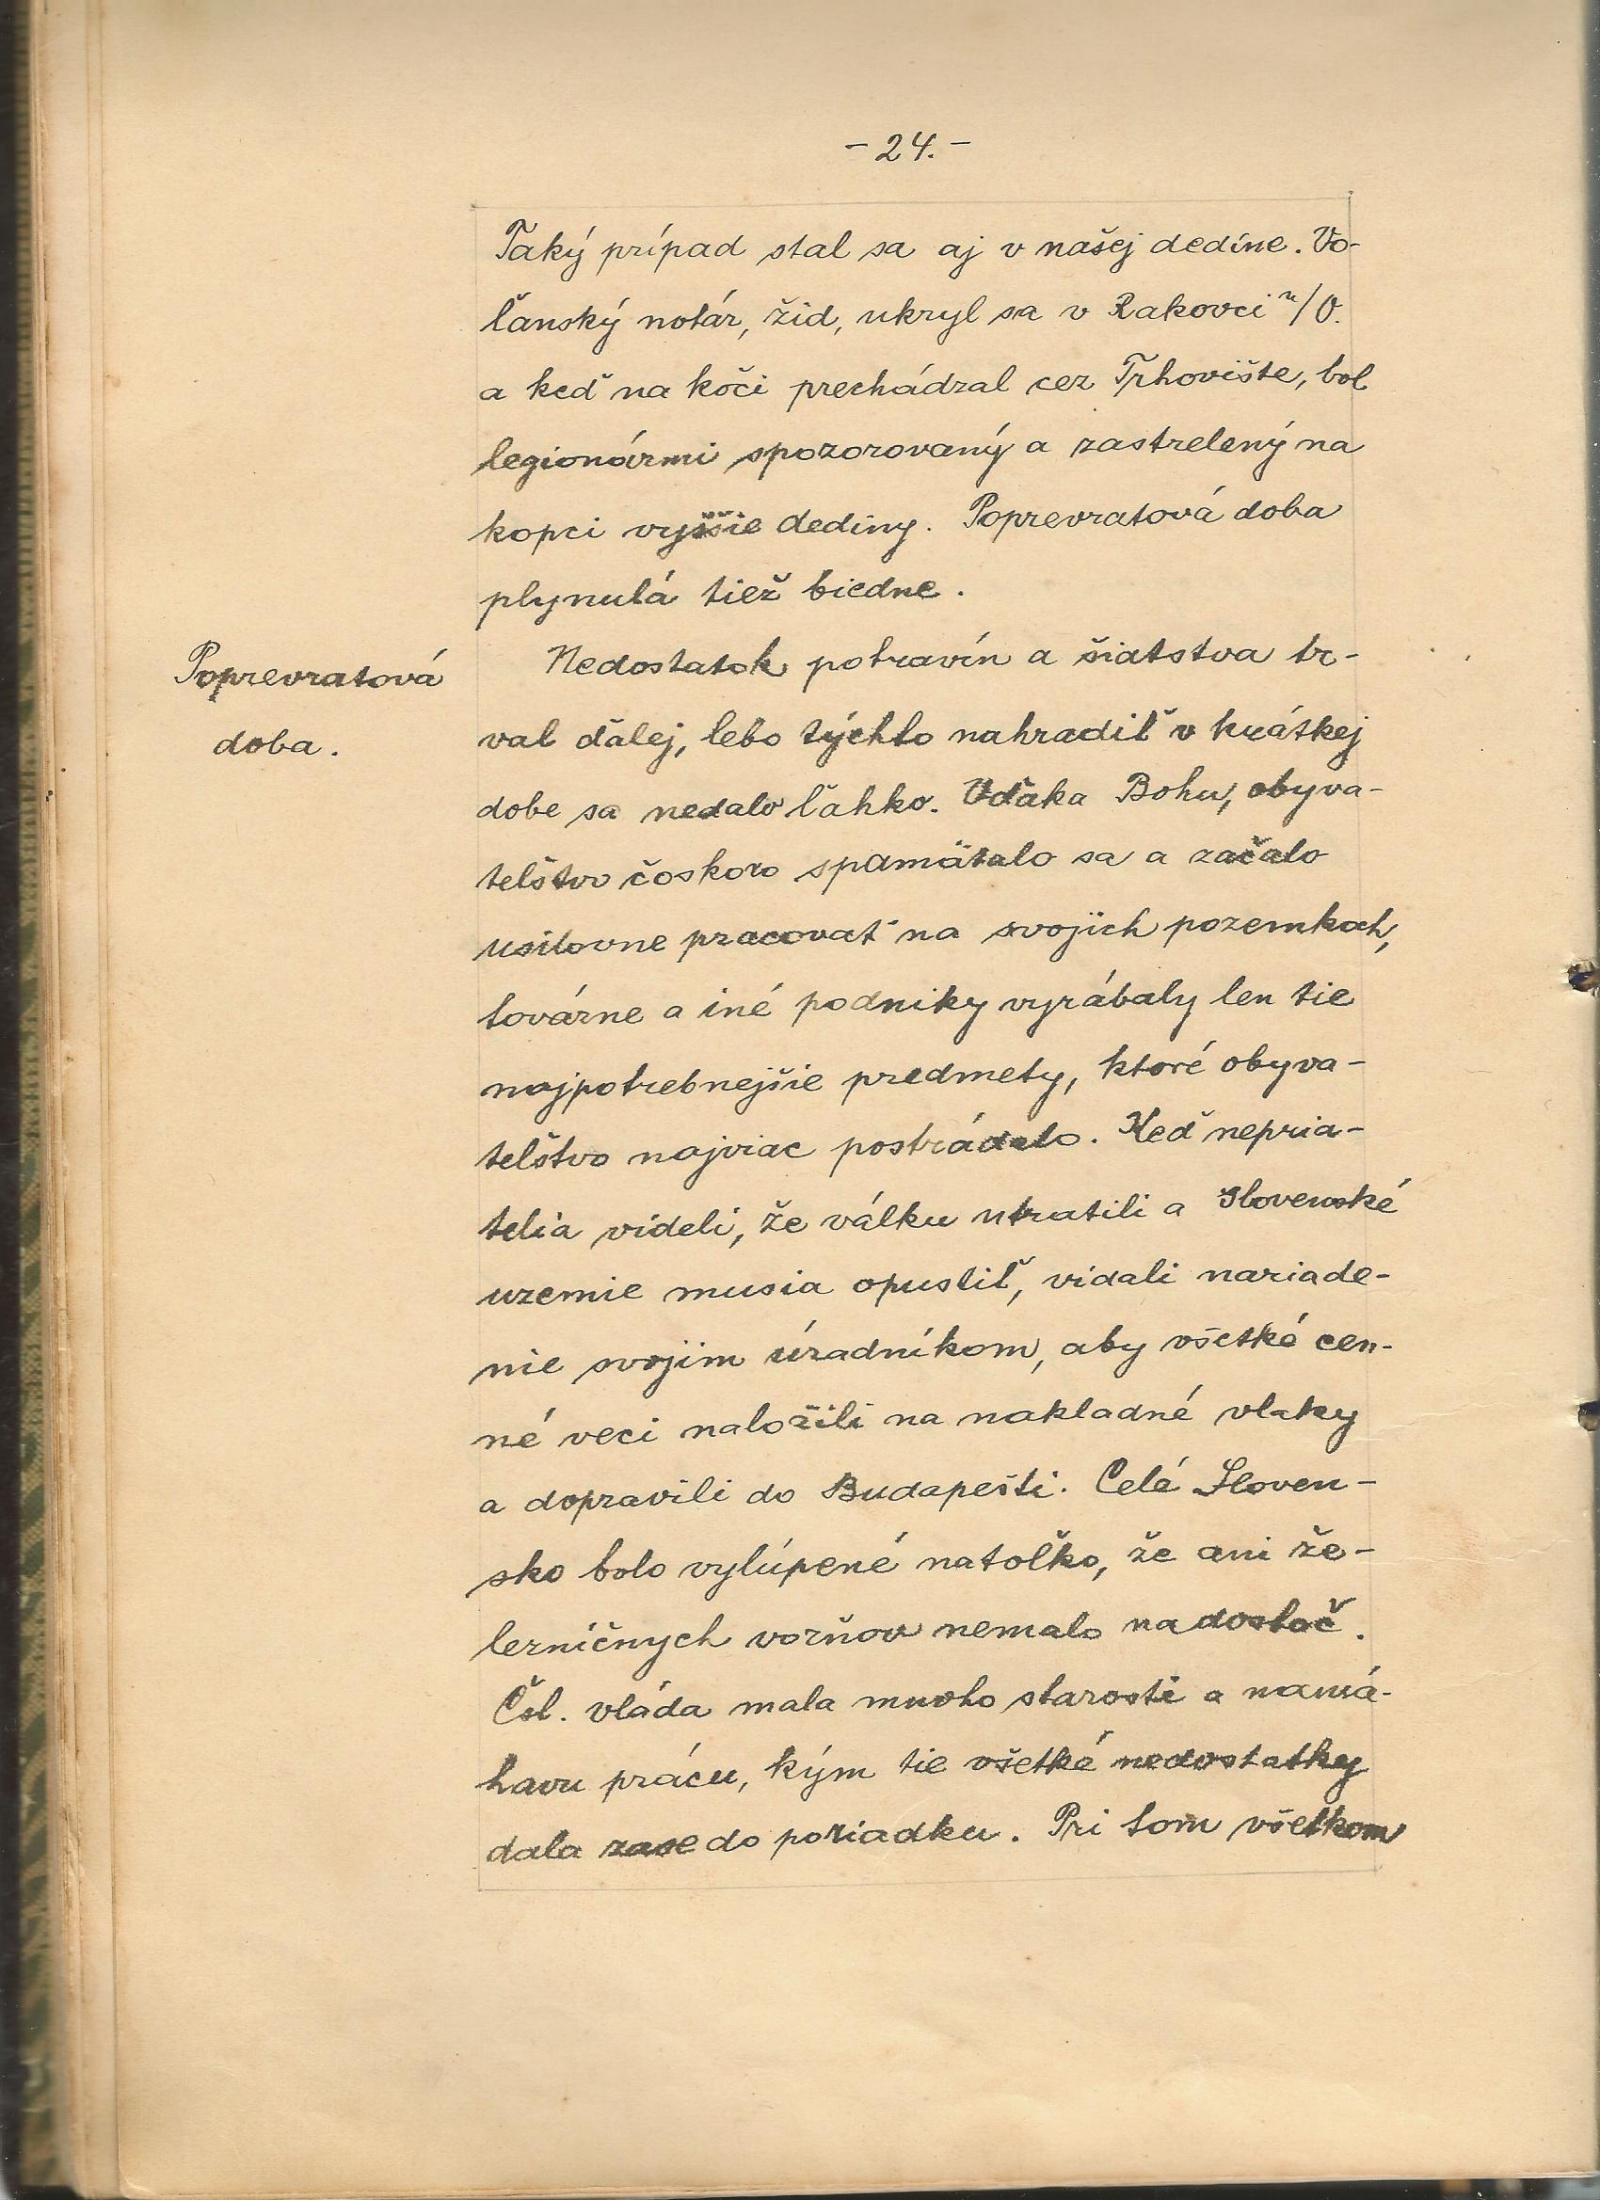 - 24. -
Taký prípad stal sa aj v našej dedine. Vo-
ľanský notár, žid, ukryl sa v Rakovci n/O.
a keď na koči prechádzal cez Trhovište, bol
legionármi spozorovaný a zastrelený na
kopci vyššie dediny. Poprevratová doba
plynulá tiež biedne.
Poprevratová
doba.
Nedostatok potravín a šiatstva tr-
val ďalej, lebo týchto nahradiť v krátkej
dobe sa nedalo ľahko. Vďaka Bohu, obyva-
teľstvo čoskoro spamätalo sa a začalo
usilovne pracovať na svojich pozemkach,
továrne a iné podniky vyrábaly len tie
najpotrebnejšie predmety, ktoré obyva-
teľstvo najviac postrádalo. Keď nepria-
telia videli, že válku utratili a Slovenské
uzemie musia opustiť, vidali nariade-
nie svojim úradníkom, aby všetké cen-
né veci naložili na nakladné vlaky
a dopravili do Budapešti. Celé Sloven-
sko bolo vylúpené natoľko, že ani že-
lezničnych vozňov nemalo nadostač.
Čsl. vláda mala mnoho starosti a namá-
havu prácu, kým tie všetké nedostatky
dala zase do poriadku. Pri tom všetkom